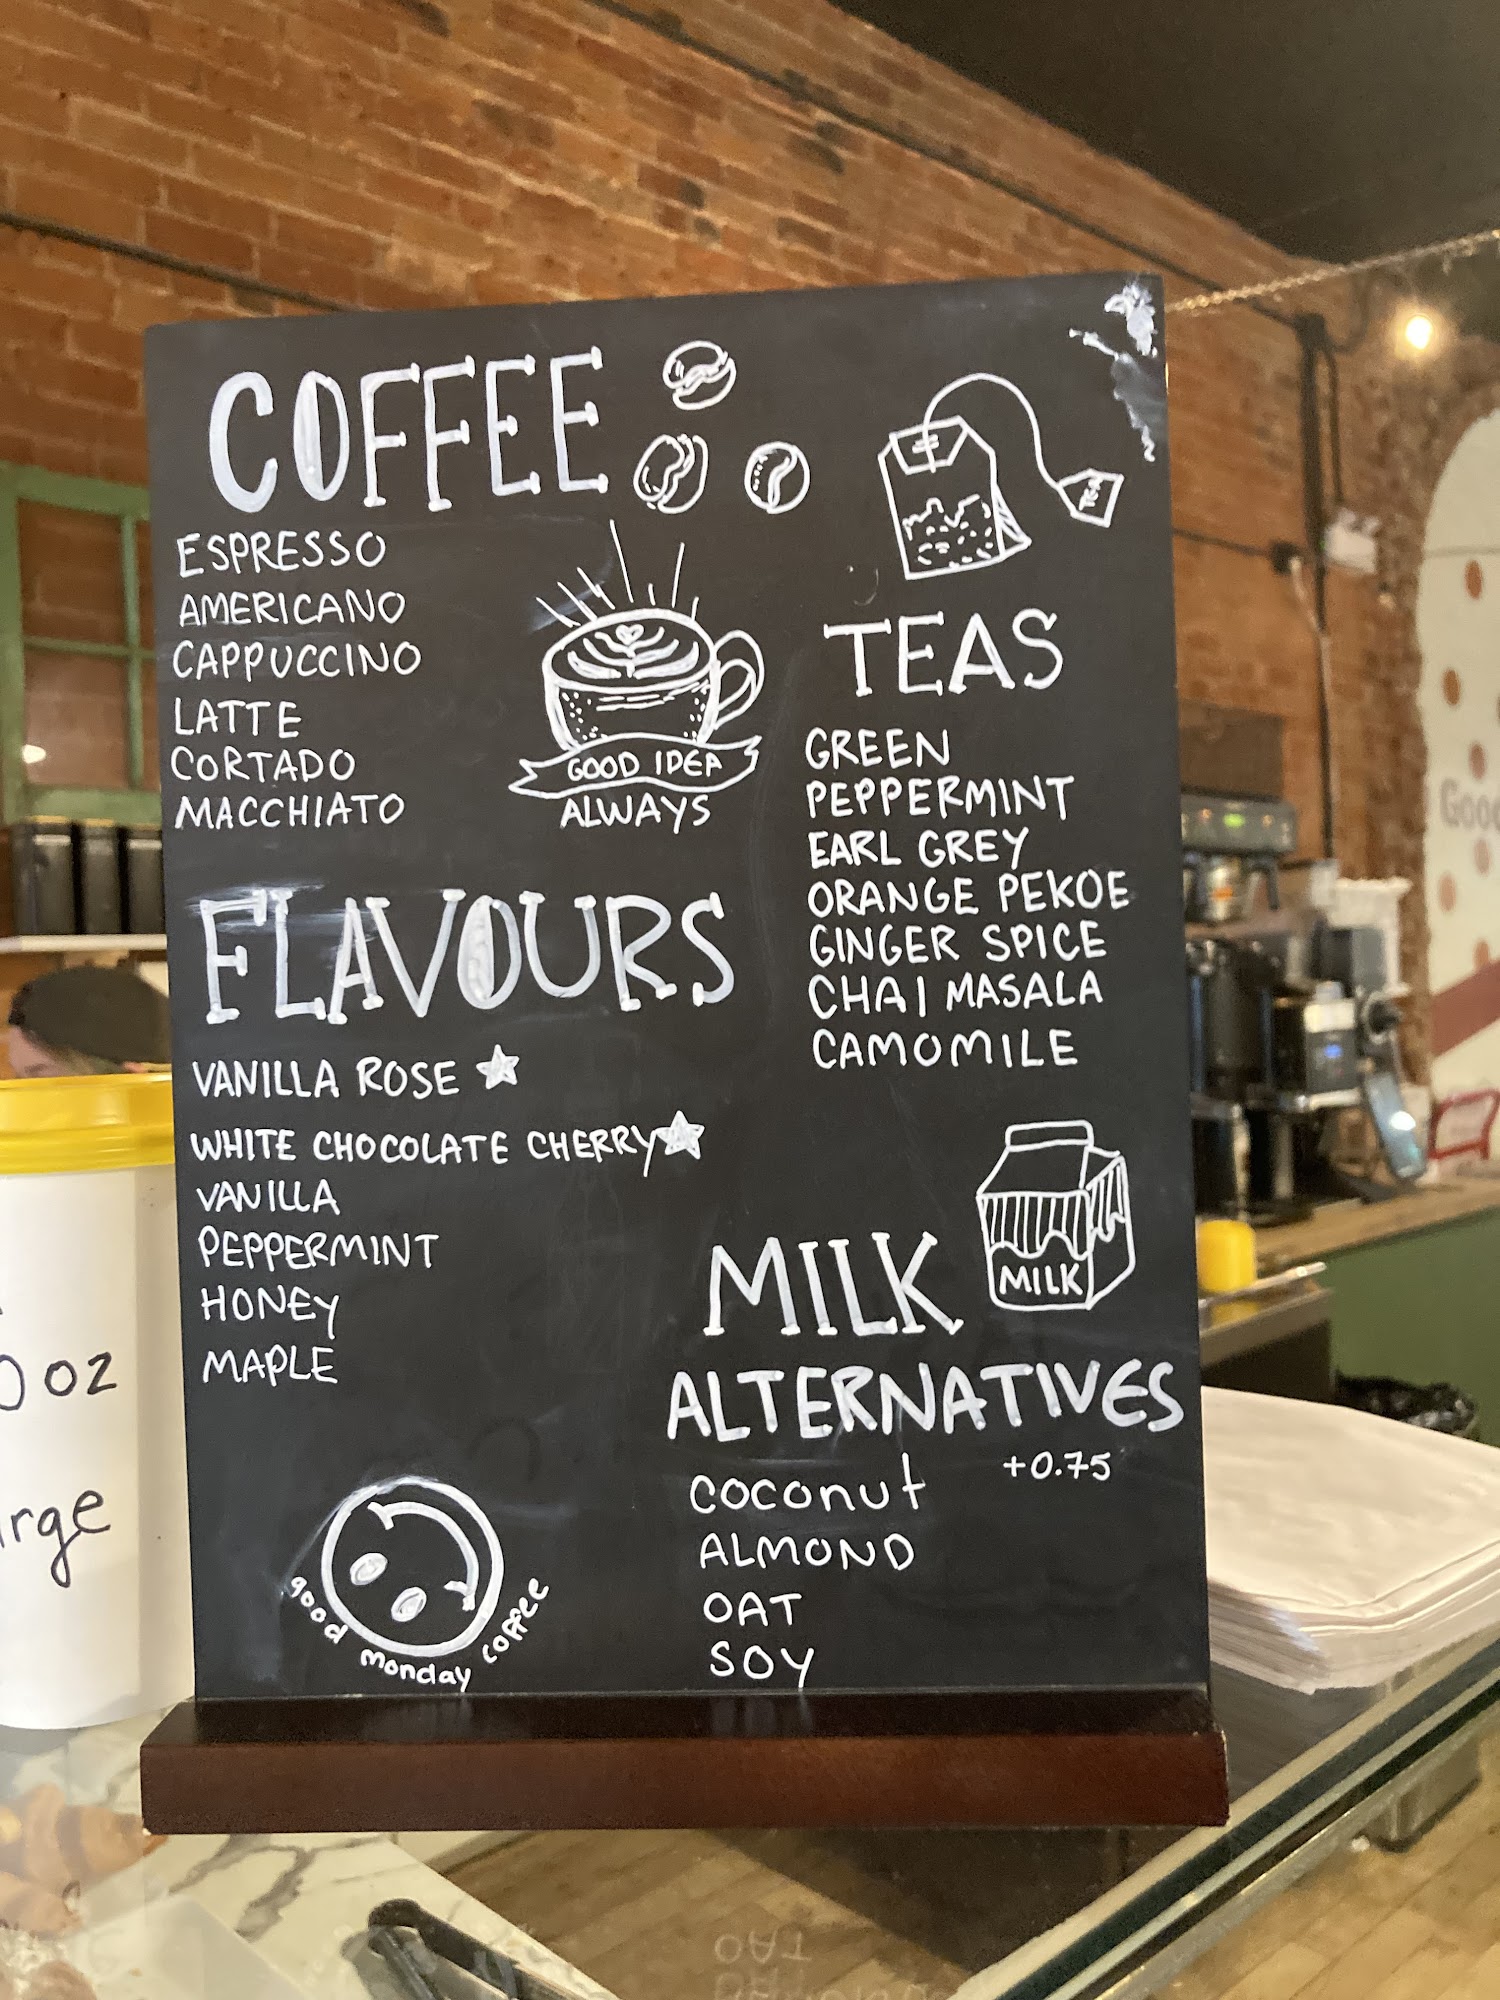 COFFEE
ESPRESSO
AMERICANO
CAPPUCCINO
LATTE
CORTADO
MACCHIATO
GOOD IDEA
ALWAYS
TEA
TEAS
GREEN
PEPPERMINT
EARL GREY
ORANGE PEKOE
GINGER SPICE
CHAI MASALA
CAMOMILE
FLAVOURS
VANILLA ROSE
WHITE CHOCOLATE CHERRY
VANILLA
PEPPERMINT
HONEY
MAPLE
MILK
MILK
ALTERNATIVES
+0.75
COCONUT
ALMOND
OAT
SOY
good monday coffee
0 oz
rge
Good